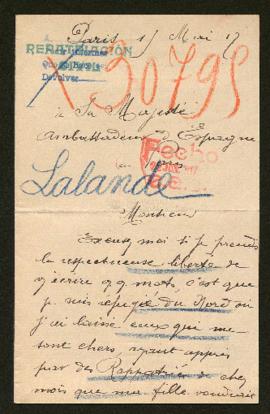 Paris 15 Mai 17
REPATRIACIÓN
Devolver
30795
à Sa Majesté
Ambassadeur d'Espagne
Paris
Fecho
Lalande
Monsieur
Excusez moi si je prends
la respectueuse liberté de
écrire qq mots, c'est que
je suis du Nord où
j'ai laissé ceux qui me
sont chers ayant appris
par des Rapatriés de chez
mois que ma fille voudrait